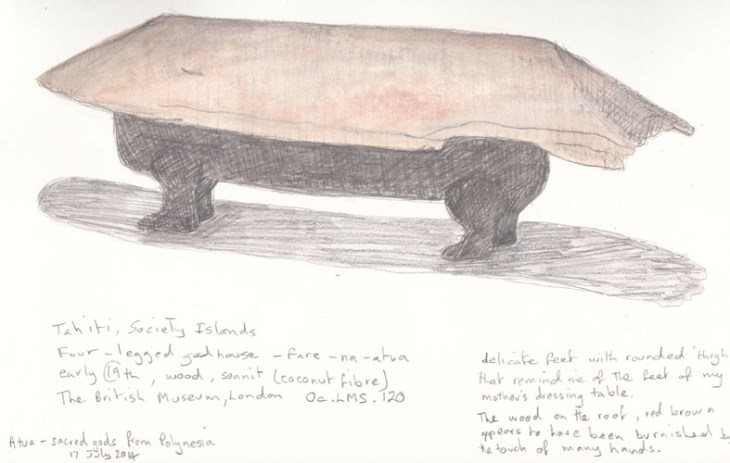 Tahiti, Society Islands
Four-legged godhouse - fare-na-atua
early 19th, wood, sennit (coconut fibre)
The British Museum, London Oc.LMS.120
Atua - sacred gods from Polynesia
17 July 2014
delicate feet with rounded 'thigh
that remind me of the feet of my
mother's dressing table.
The wood on the roof, red brown
appears to have been burnished b
the touch of many hands.